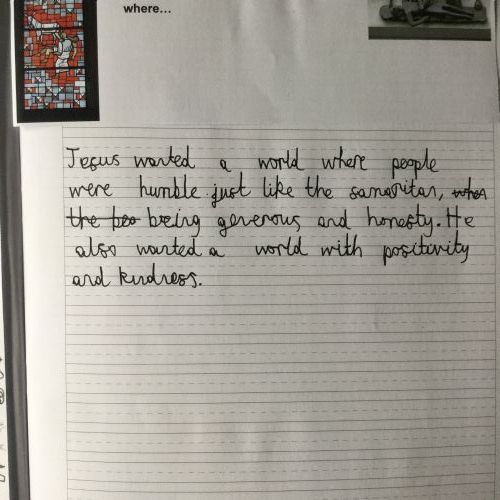 where...
Jesus wanted a world where people
were humble just like the samaritan, when
the peo being generous and honesty. He
also wanted a world with positivity
and kindness.